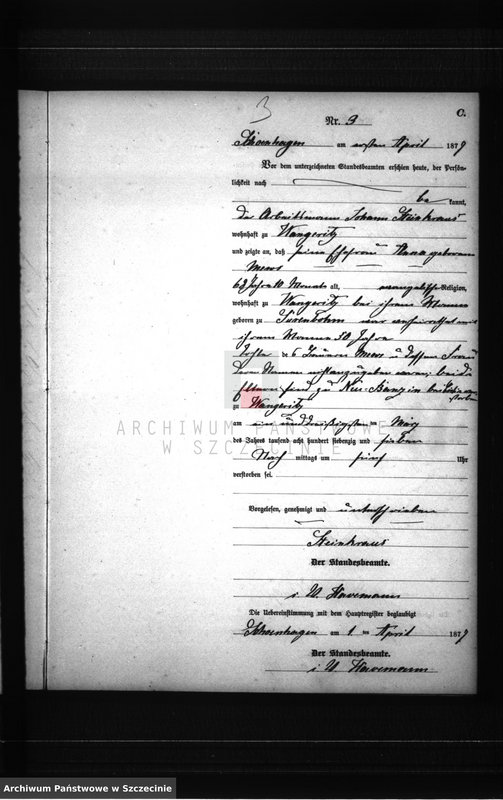 3
C.
Nr. 3
Schoenhagen am ersten April 1877
Vor dem unterzeichneten Standesbeamten erschien heute, der Persön-
lichkeit nach
be kannt,
der Arbeitsmann Johann Steinkraus
wohnhaft zu Wangeritz
und zeigte an, daß seine Ehefrau Hana geborene
Mews
63 Jahre 10 Monate alt, evangelischer Religion,
wohnhaft zu Wangeritz bei ihrem Manne
geboren zu war verheirathet mit
ihrem Manne 30 Jahre
Tochter des Mews u dessen Frau
deren Namen nicht anzugeben waren; beide
Eltern sind zu Neu- ver
storben
zu Wangeritz
am ein und dreißigsten März
des Jahres tausend acht hundert siebenzig und sieben
Nach mittags um fünf Uhr
verstorben sei.
Vorgelesen, genehmigt und unterschrieben
Steinkraus
Der Standesbeamte.
i V. Havemann
Die Uebereinstimmung mit dem Hauptregister beglaubigt
Schoenhagen am 1 ten April 1877
Der Standesbeamte.
i V Havemann
ARCHIWUM PAŃSTWOWE
W SZCZECINIE
Archiwum Państwowe w Szczecinie